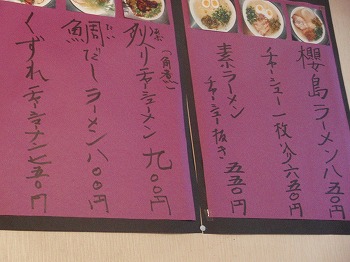 櫻島ラーメン八五〇円
チャーシュー一枚入り六五〇円
素ラーメン
チャーシュー抜き 五五〇円
(角煮)
チャーシューメン 九〇〇円
たい
鯛だしラーメン 八〇〇円
くずれチャーシューメン七五〇円